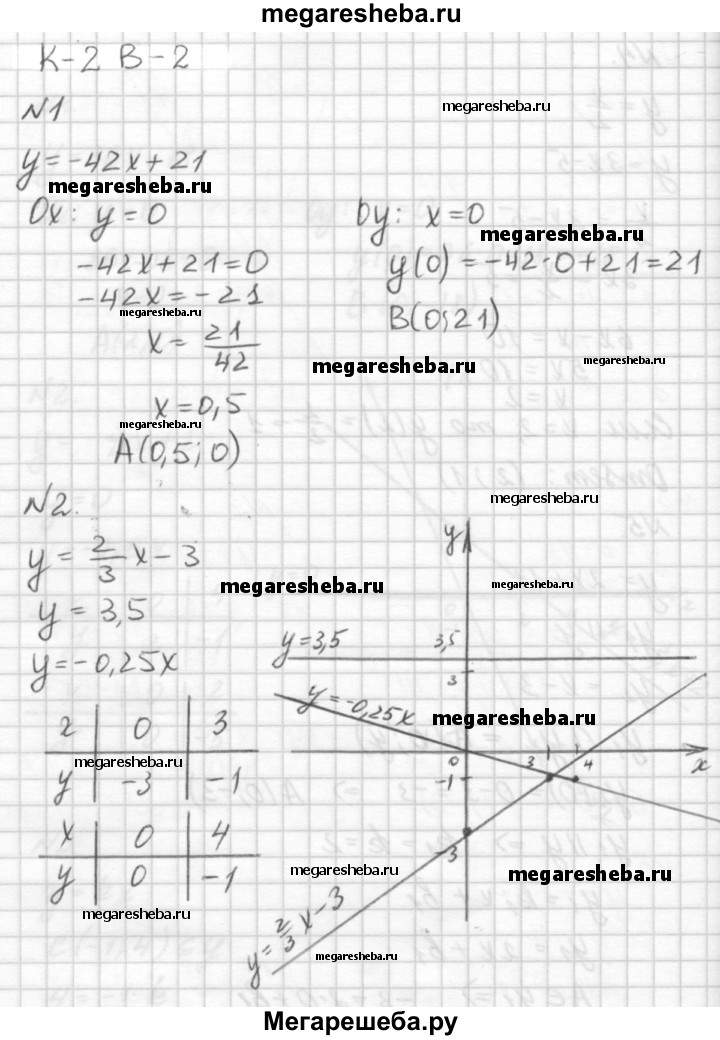 megaresheba.ru
К-2 В-2
№1
megaresheba.ru
y = -42x + 21
megaresheba.ru
Ox: y = 0
-42x + 21 = 0
-42x = -21
megaresheba.ru
x = 21/42
x = 0,5
megaresheba.ru
A(0,5; 0)
Oy: x = 0
megaresheba.ru
y(0) = -42·0 + 21 = 21
B(0; 21)
megaresheba.ru
megaresheba.ru
№2.
megaresheba.ru
y = 2/3 x - 3
megaresheba.ru
megaresheba.ru
y = 3,5
y = -0,25x
2 | 0 | 3
megaresheba.ru
y | -3 | -1
x | 0 | 4
y | 0 | -1
megaresheba.ru
y
y = 3,5
3,5
3
y = -0,25x
megaresheba.ru
0 3 4 x
-1
-3
megaresheba.ru
megaresheba.ru
y = 2/3 x - 3
megaresheba.ru
Мегарешеба.ру